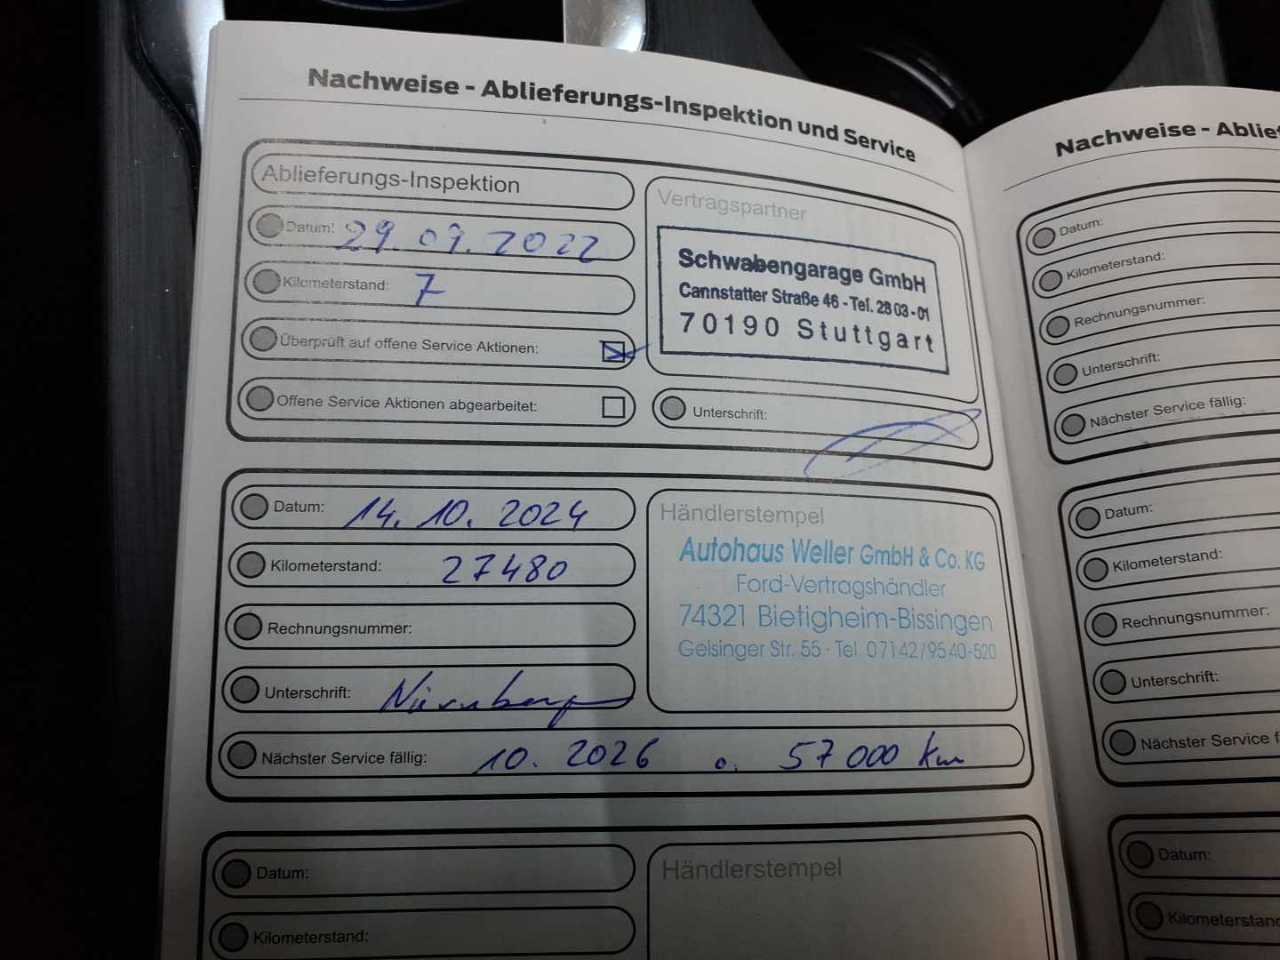 Nachweise - Ablieferungs-Inspektion und Service
Ablieferungs-Inspektion
Datum: 29.09.2022
Kilometerstand: 7
Überprüft auf offene Service Aktionen:
Offene Service Aktionen abgearbeitet:
Vertragspartner
Schwabengarage GmbH
Cannstatter Straße 46 - Tel. 28 03 - 01
70190 Stuttgart
Unterschrift:
Datum: 14. 10. 2024
Kilometerstand: 27480
Rechnungsnummer:
Unterschrift:
Nächster Service fällig: 10. 2026 o. 57 000 km
Händlerstempel
Autohaus Weller GmbH & Co. KG
Ford-Vertragshändler
74321 Bietigheim-Bissingen
Geisinger Str. 55 · Tel. 07142/9540-520
Datum:
Kilometerstand:
Händlerstempel
Nachweise - Ablie
Datum:
Kilometerstand:
Rechnungsnummer:
Unterschrift:
Nächster Service fällig:
Datum:
Kilometerstand:
Rechnungsnummer:
Unterschrift:
Nächster Service f
Datum:
Kilometerstand